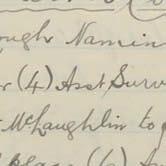 ough Namin
r (4) Asst Surv
McLaughlin to
place (6)